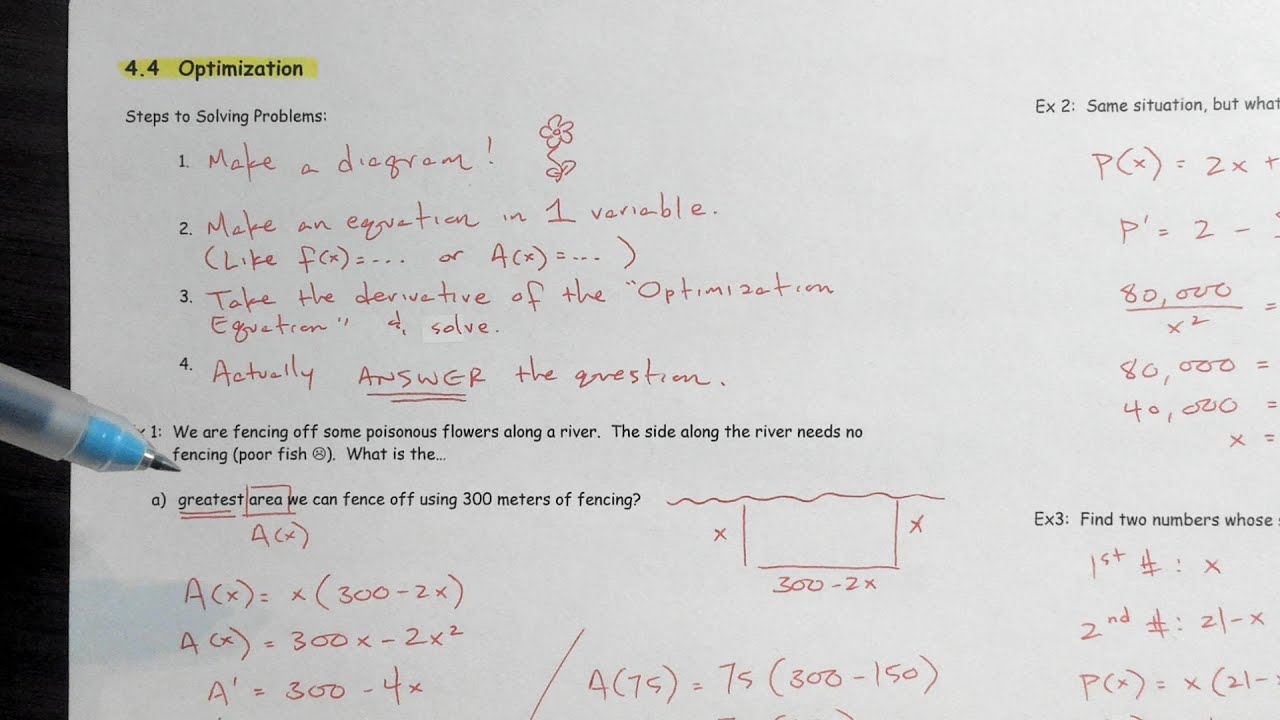 4.4 Optimization
Steps to Solving Problems:
1. Make a diagram!
2. Make an equation in 1 variable.
(Like f(x)=... or A(x)=...)
3. Take the derivative of the "Optimization
Equation" & solve.
4. Actually ANSWER the question.
1: We are fencing off some poisonous flowers along a river. The side along the river needs no
fencing (poor fish ☹). What is the...
a) greatest area we can fence off using 300 meters of fencing?
A(x)
x
x
300-2x
A(x) = x(300-2x)
A(x) = 300x-2x²
A' = 300-4x
A(75) = 75(300-150)
Ex 2: Same situation, but what
P(x) = 2x +
P' = 2 -
80,000
x²
=
80,000 =
40,000 =
x =
Ex3: Find two numbers whose
1st #: x
2nd #: 21-x
P(x) = x(21-